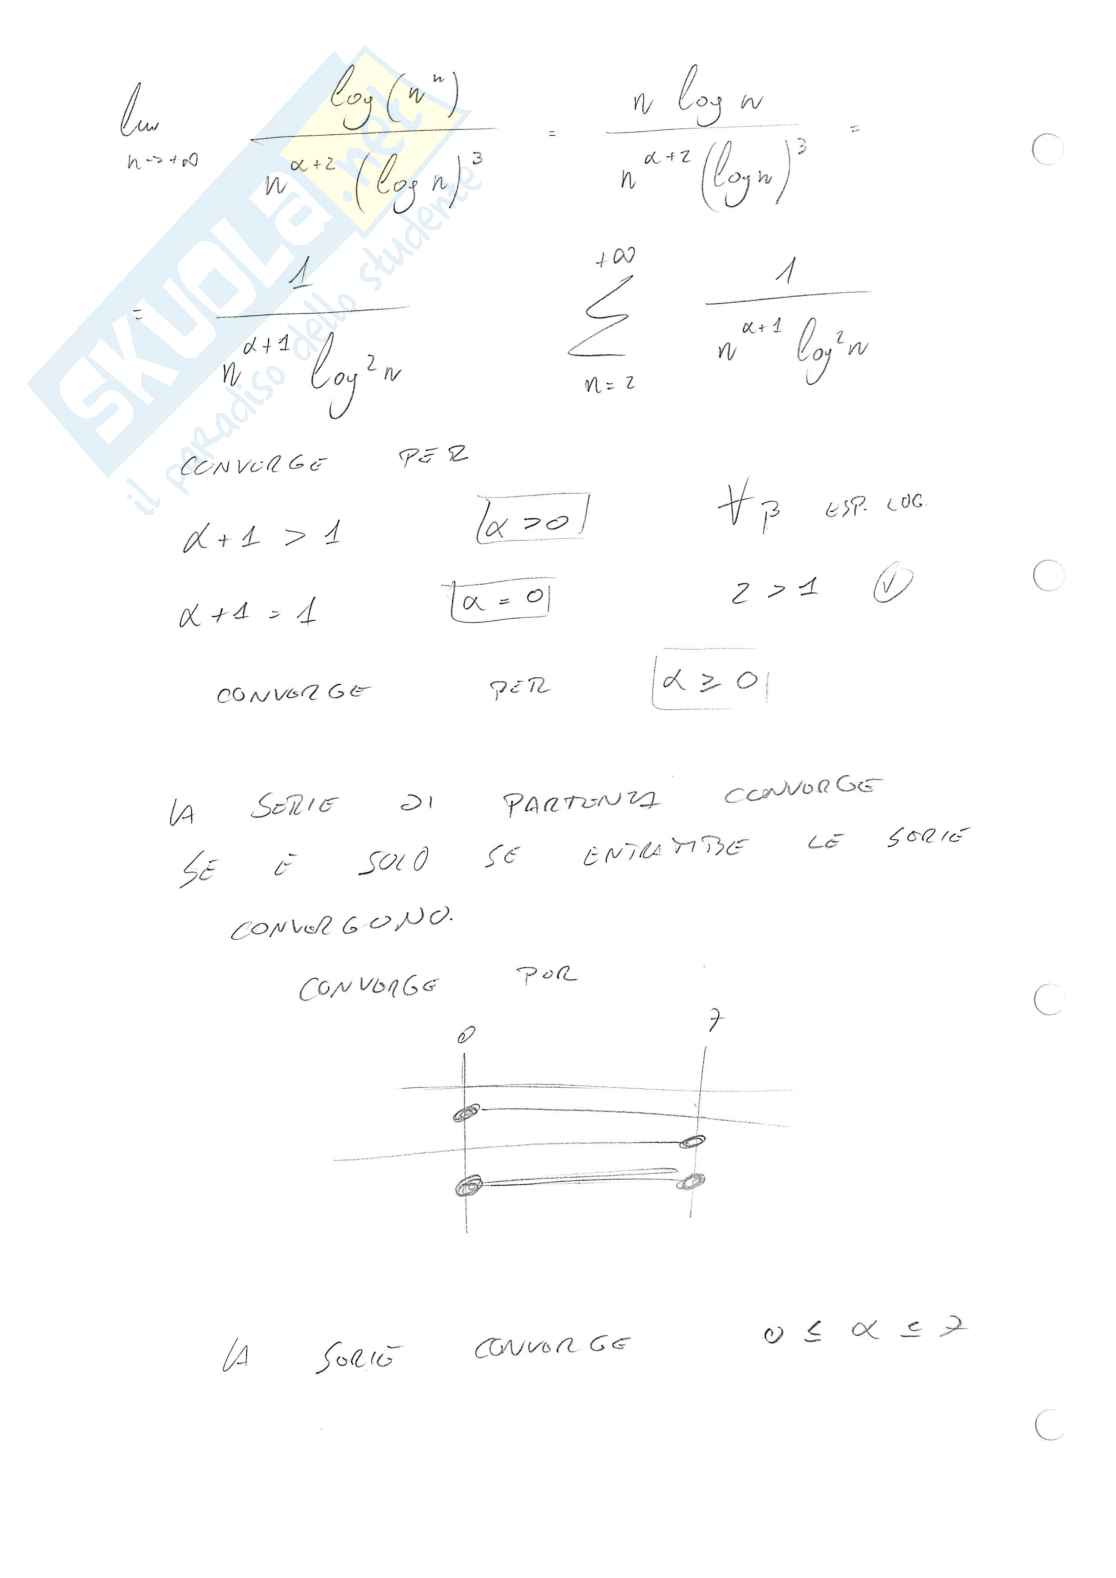 lim n→+∞ log(n^n) / n^(α+2) (log n)^3 = n log n / n^(α+2) (log n)^3 =
= 1 / n^(α+1) log^2 n   +∞ ∑ n=2 1 / n^(α+1) log^2 n
CONVERGE PER
α+1 > 1   α>0   ∀β ESP. LOG.
α+1 = 1   α=0   2>1 ✓
CONVERGE PER α ≥ 0
LA SERIE DI PARTENZA CONVERGE
SE E SOLO SE ENTRAMBE LE SERIE
CONVERGONO.
CONVERGE PER
0 7
LA SERIE CONVERGE 0 ≤ α ≤ 7
SKUOLA.net
il paradiso dello studente